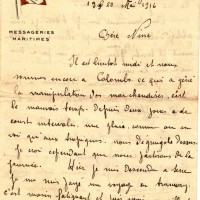 MESSAGERIES
MARITIMES
1916
Chère Nine
Il est bientôt midi et nous
sommes encore à Colombo ce qui a gêné
la manipulation des marchandises, c'est
le mauvais temps. depuis deux jours à de
courts intervalles une pluie comme on en
voit qu'aux tropiques nous
Je crois cependant que nous partirons dans la
journée. Hier je suis descendu à terre
je me suis payé un voyage en tramway
c'est moins fatigant et